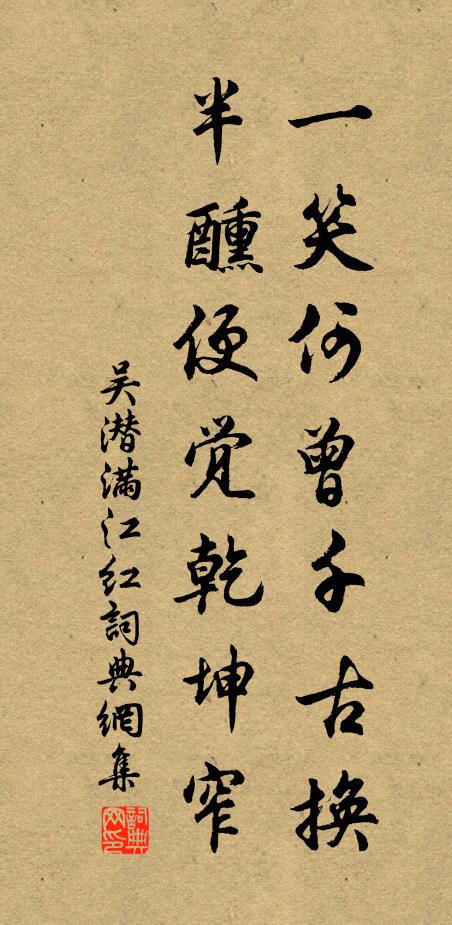 一笑何曾千古换
半醺便觉乾坤窄
吴潜满江红詞典網集
詞典网印